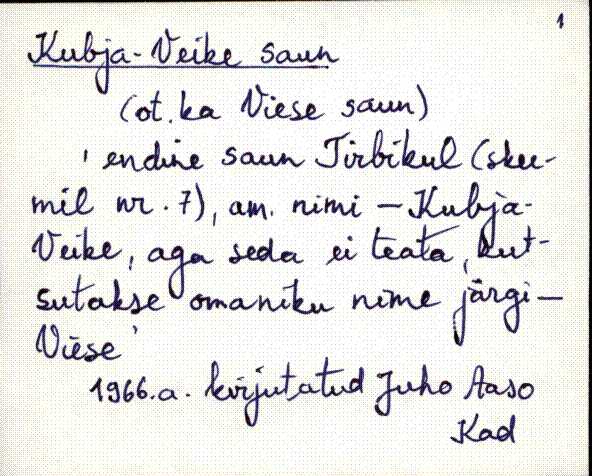 1
Kubja-Veike saun
(ot. ka Viese saun)
' endine saun Tirbikul (skee-
mil nr. 7), am. nimi – Kubja-
Veike, aga seda ei teata, kut-
sutakse omaniku nime järgi –
Viese '
1966.a. kirjutatud Juho Aaso
Kad